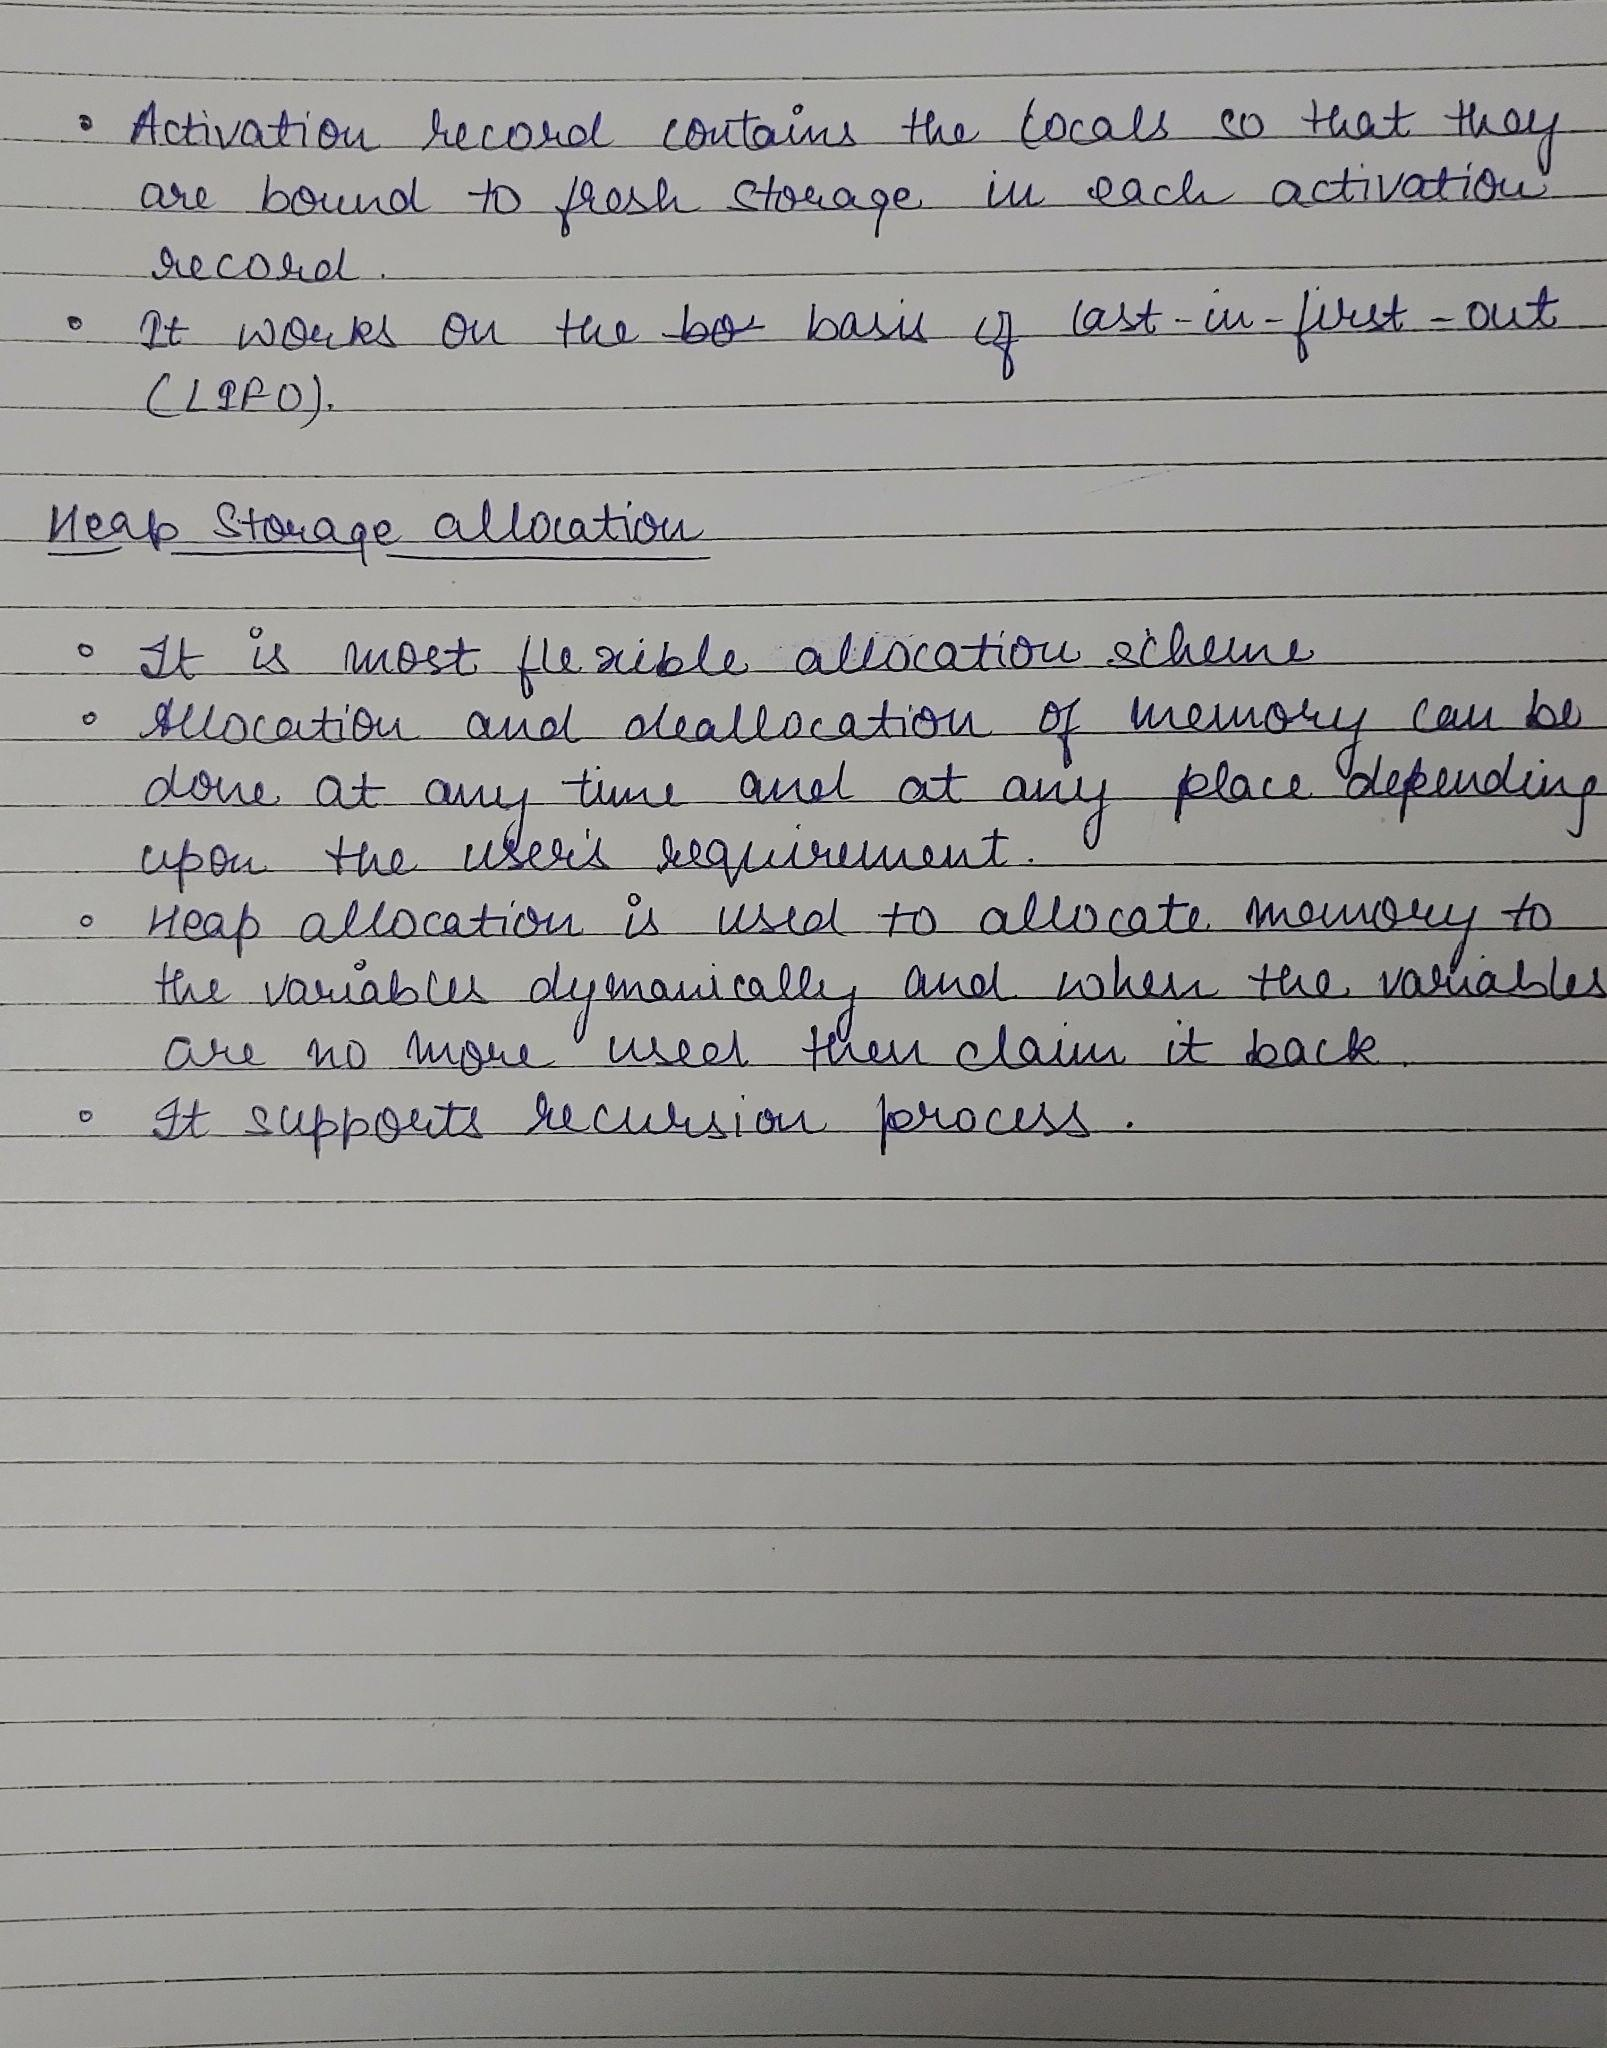 • Activation record contains the locals so that they
are bound to fresh storage in each activation
record.
• It works on the bas basis of last-in-first-out
(LIFO).
Heap Storage allocation
• It is most flexible allocation scheme
• Allocation and deallocation of memory can be
done at any time and at any place depending
upon the user's requirement.
• Heap allocation is used to allocate memory to
the variables dymanically and when the variables
are no more used then claim it back.
• It supports recursion process.